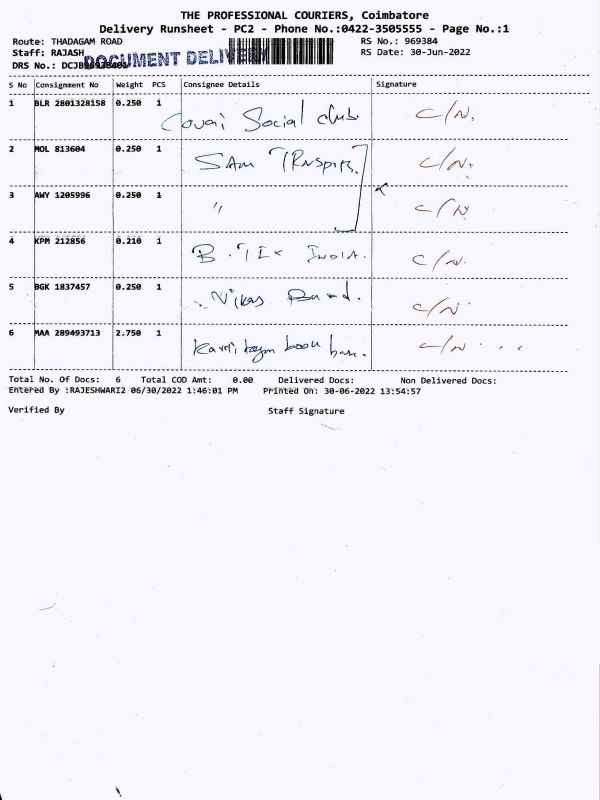 THE PROFESSIONAL COURIERS, Coimbatore
Delivery Runsheet - PC2 - Phone No.:0422-3505555 - Page No.:1
Route: THADAGAM ROAD RS No.: 969384
Staff: RAJASH RS Date: 30-Jun-2022
DOCUMENT DELIVERY
DRS No.:
S No Consignment No Weight PCS Consignee Details Signature
1 BLR 2801328158 0.250 1 Covai Social club. C/N.
2 MOL 813604 0.250 1 SAM C/N.
3 AWY 1205996 0.250 1 〃 C/N
4 KPM 212856 0.210 1 B.TEX INDIA. C/N.
5 BGK 1837457 0.250 1 Nikas C/N
6 MAA 289493713 2.750 1 book C/N
Total No. Of Docs: 6 Total COD Amt: 0.00 Delivered Docs: Non Delivered Docs:
Entered By :RAJESHWARI2 06/30/2022 1:46:01 PM Printed On: 30-06-2022 13:54:57
Verified By Staff Signature